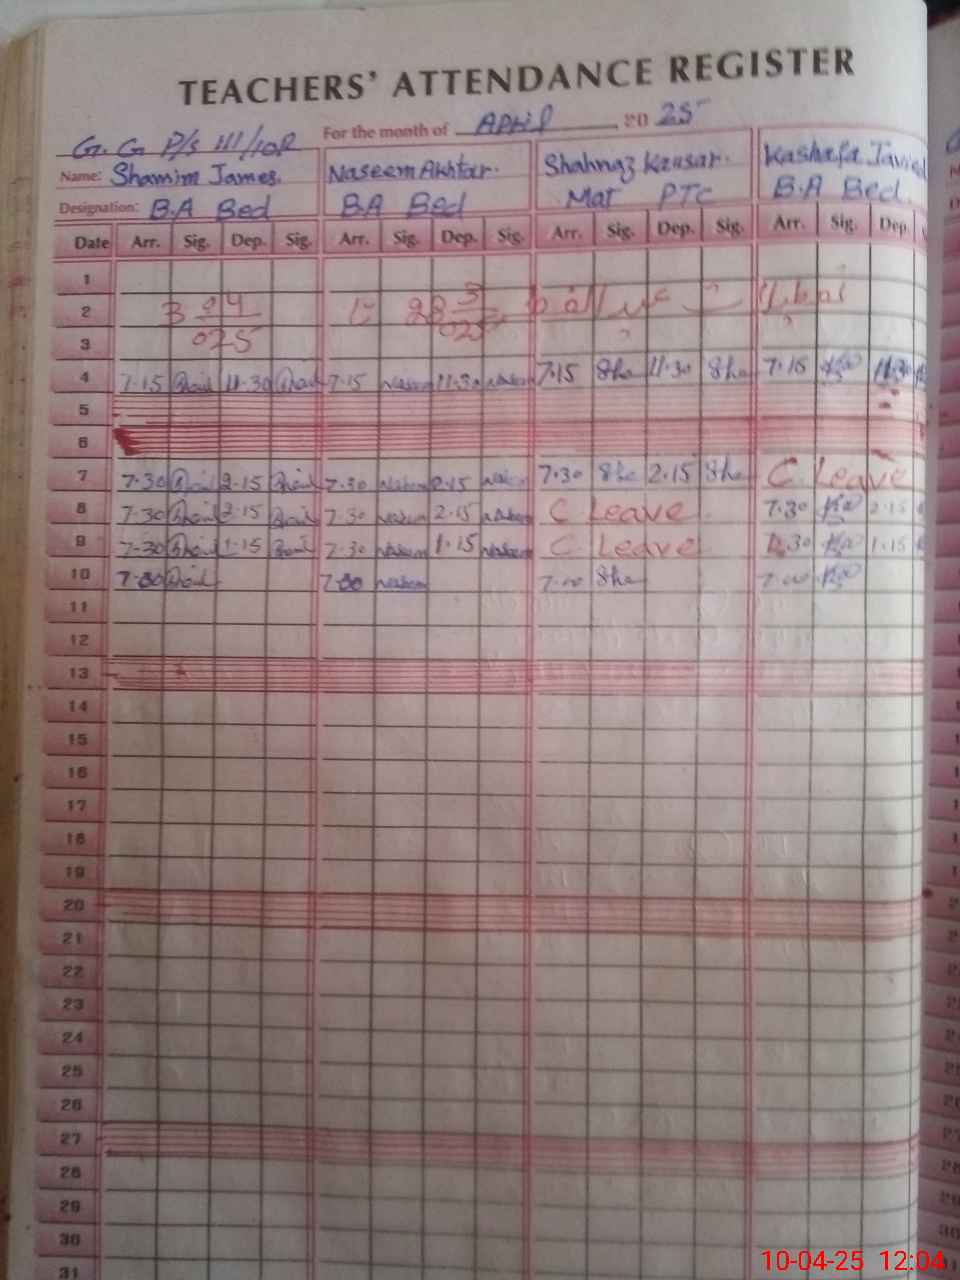 TEACHERS' ATTENDANCE REGISTER
For the month of April 2025
G. G P/S 111/10R
Name: Shamim James. Naseem Akhtar. Shahnaz Kausar. Kashafa Javied
Designation: B.A Bed B.A Bed Mat PTC B.A Bed
Date Arr. Sig. Dep. Sig. Arr. Sig. Dep. Sig. Arr. Sig. Dep. Sig. Arr. Sig. Dep.
1
2
3
4 7-15 11-30 7-15 Naseem 11-30 Naseem 7-15 Sha 11-30 Sha 7-15 11-30
5
6
7 7-30 2-15 7-30 Naseem 2-15 7-30 Sha 2-15 Sha C. Leave
8 7-30 2-15 7-30 Naseem 2-15 Naseem C Leave 7-30 2-15
9 7-30 1-15 7-30 Naseem 1-15 Naseem C. Leave 7-30 1-15
10 7-00 7-00 Naseem 7-00 Sha 7-00
11
12
13
14
15
16
17
18
19
20
21
22
23
24
25
26
27
28
29
30
31
10-04-25 12:04